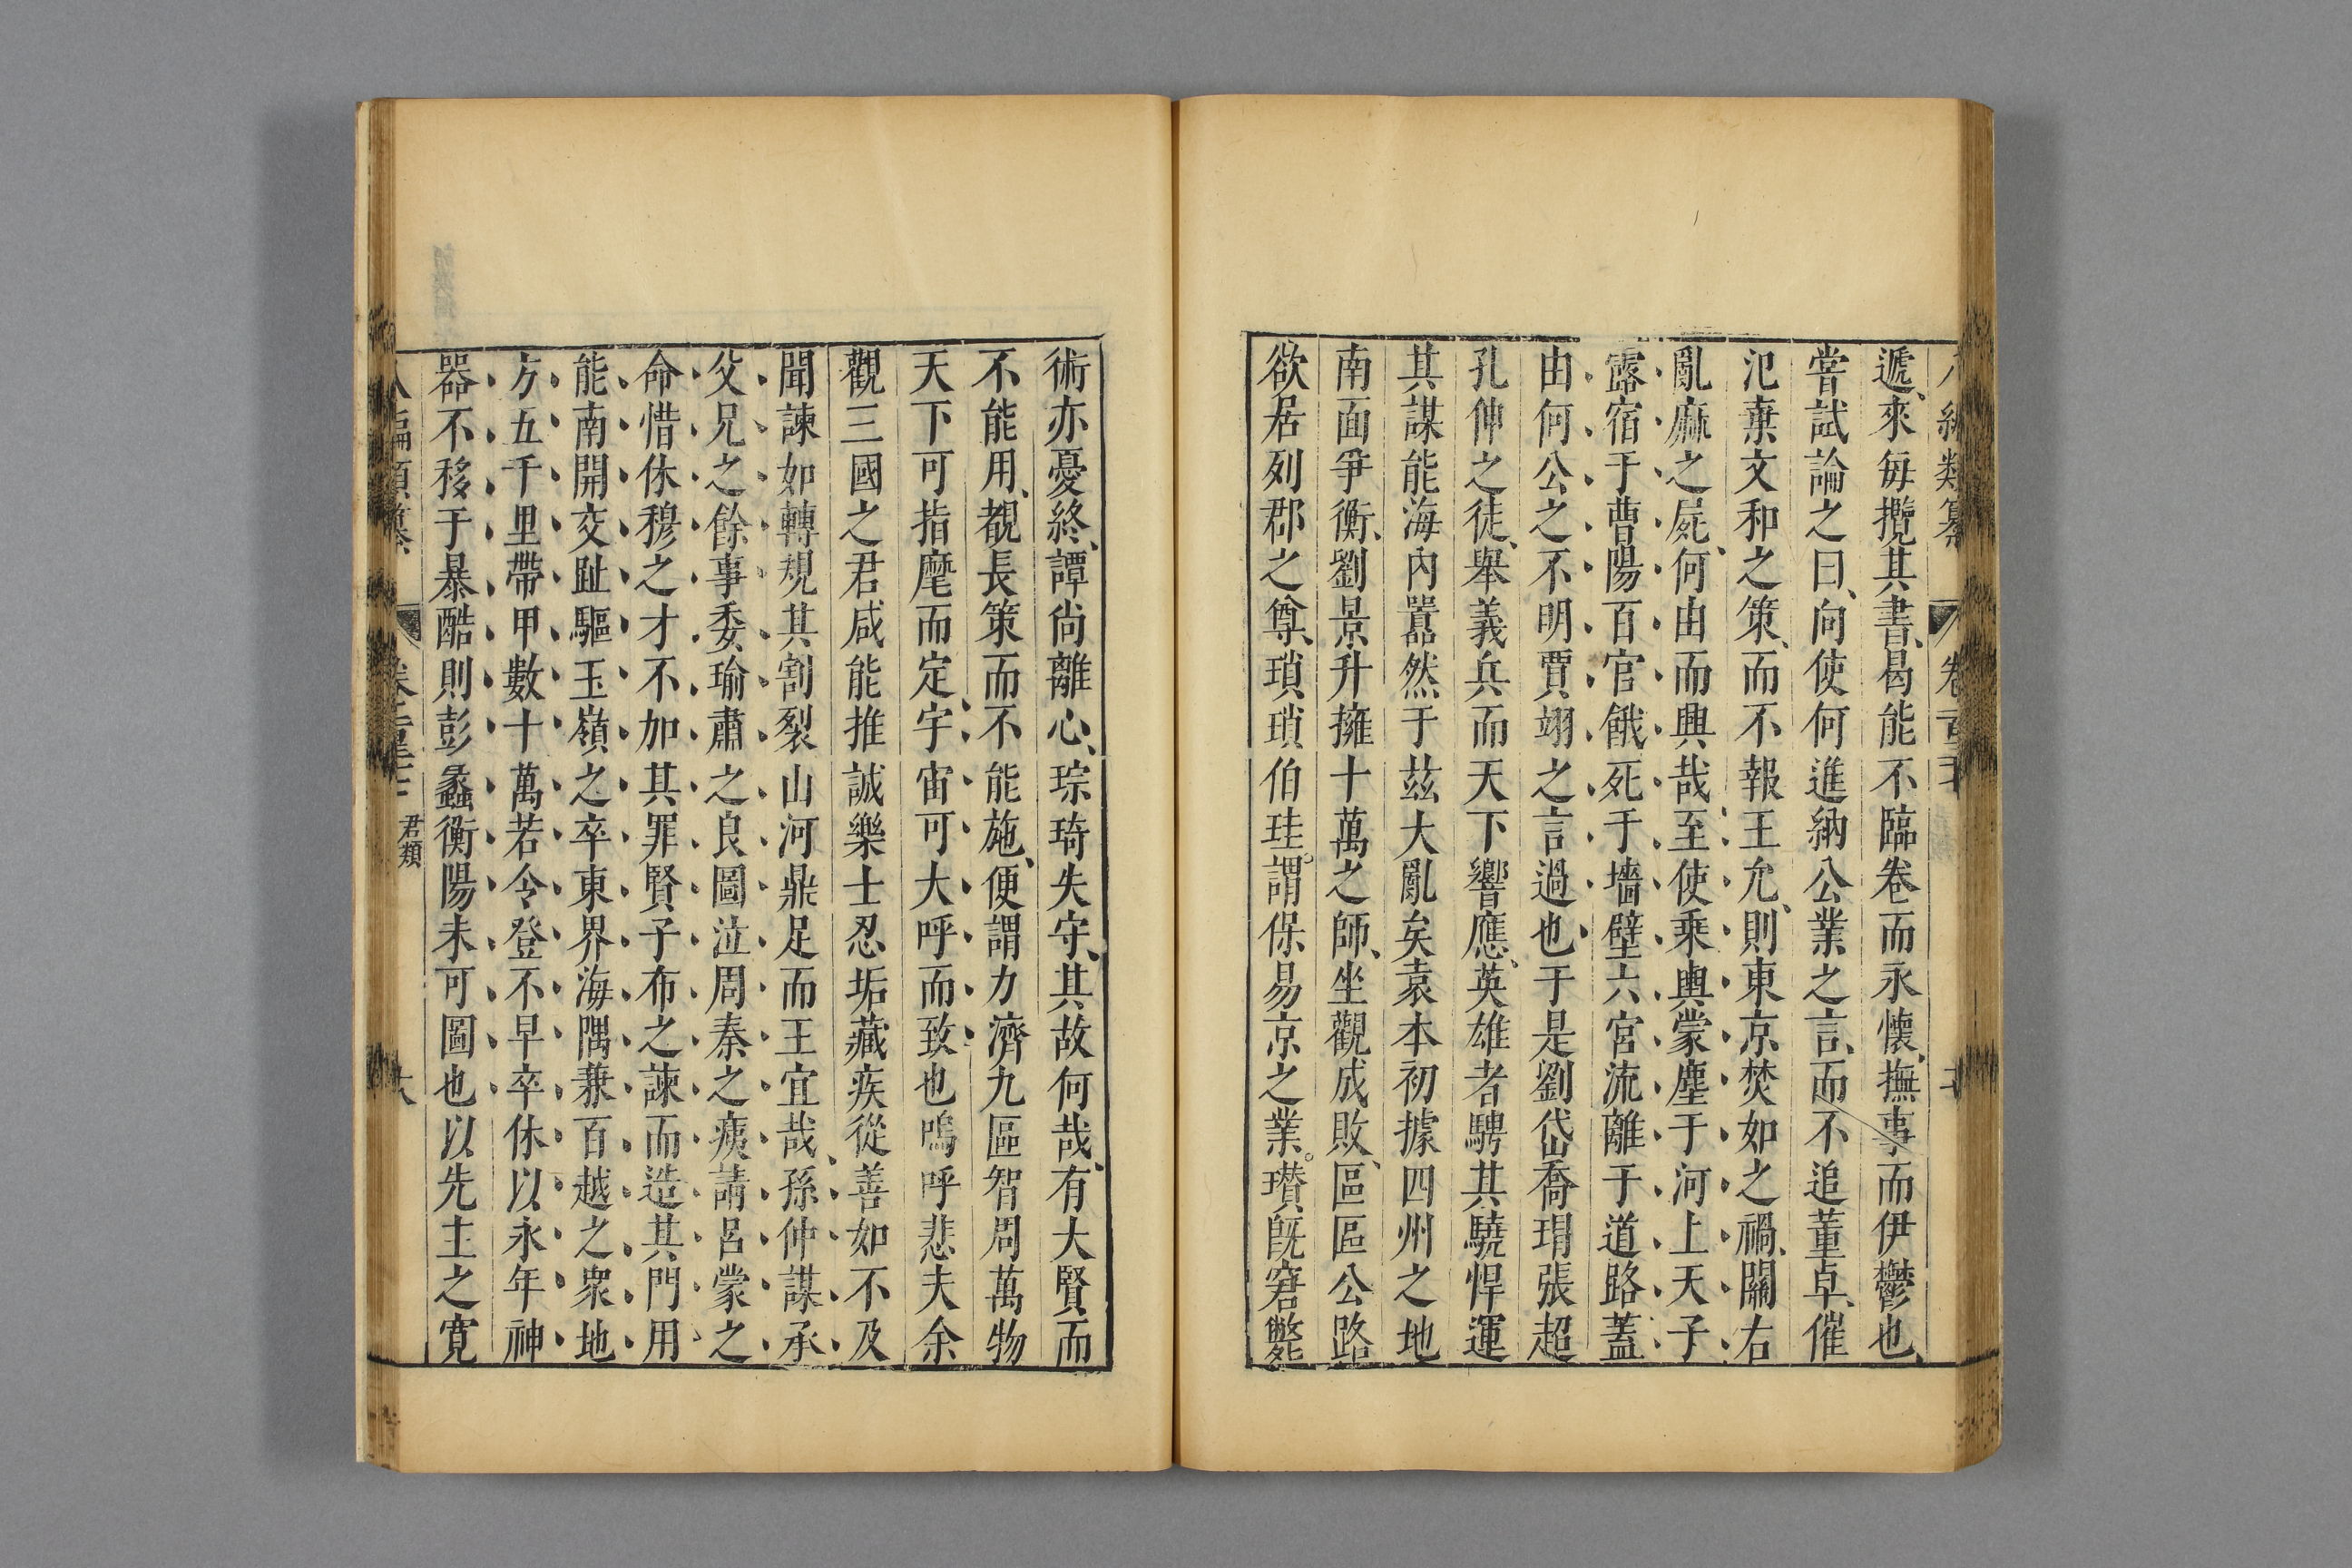 遞來每攬其書曷能不臨卷而永懷撫事而伊鬱也
嘗試論之曰向使何進納公業之言而不追董卓催
氾棄文和之策而不報王允則東京焚如之禍關右
亂麻之屍何由而興哉至使乘輿蒙塵于河上天子
露宿于曹陽百官餓死于墻壁六宮流離于道路蓋
由何公之不明賈翊之言過也于是劉岱喬瑁張超
孔伷之徒舉義兵而天下響應英雄者騁其驍悍運
其謀能海內囂然于茲大亂矣袁本初據四州之地
南面爭衡劉景升擁十萬之師坐觀成敗區區公路
欲居列郡之尊瑣瑣伯珪謂保易京之業瓚既窘斃
術亦憂終譚尚離心琮琦失守其故何哉有大賢而
不能用覩長策而不能施便謂力濟九區智周萬物
天下可指麾而定宇宙可大呼而致也嗚呼悲夫余
觀三國之君咸能推誠樂士忍垢藏疾從善如不及
聞諫如轉規其割裂山河鼎足而王宜哉孫仲謀承
父兄之餘事委瑜肅之良圖泣周泰之痍請呂蒙之
命惜休穆之才不加其罪賢子布之諫而造其門用
能南開交趾驅玉嶺之卒東界海隅兼百越之眾地
方五千里帶甲數十萬若令登不早卒休以永年神
器不移于暴酷則彭蠡衡陽未可圖也以先主之寬
君類